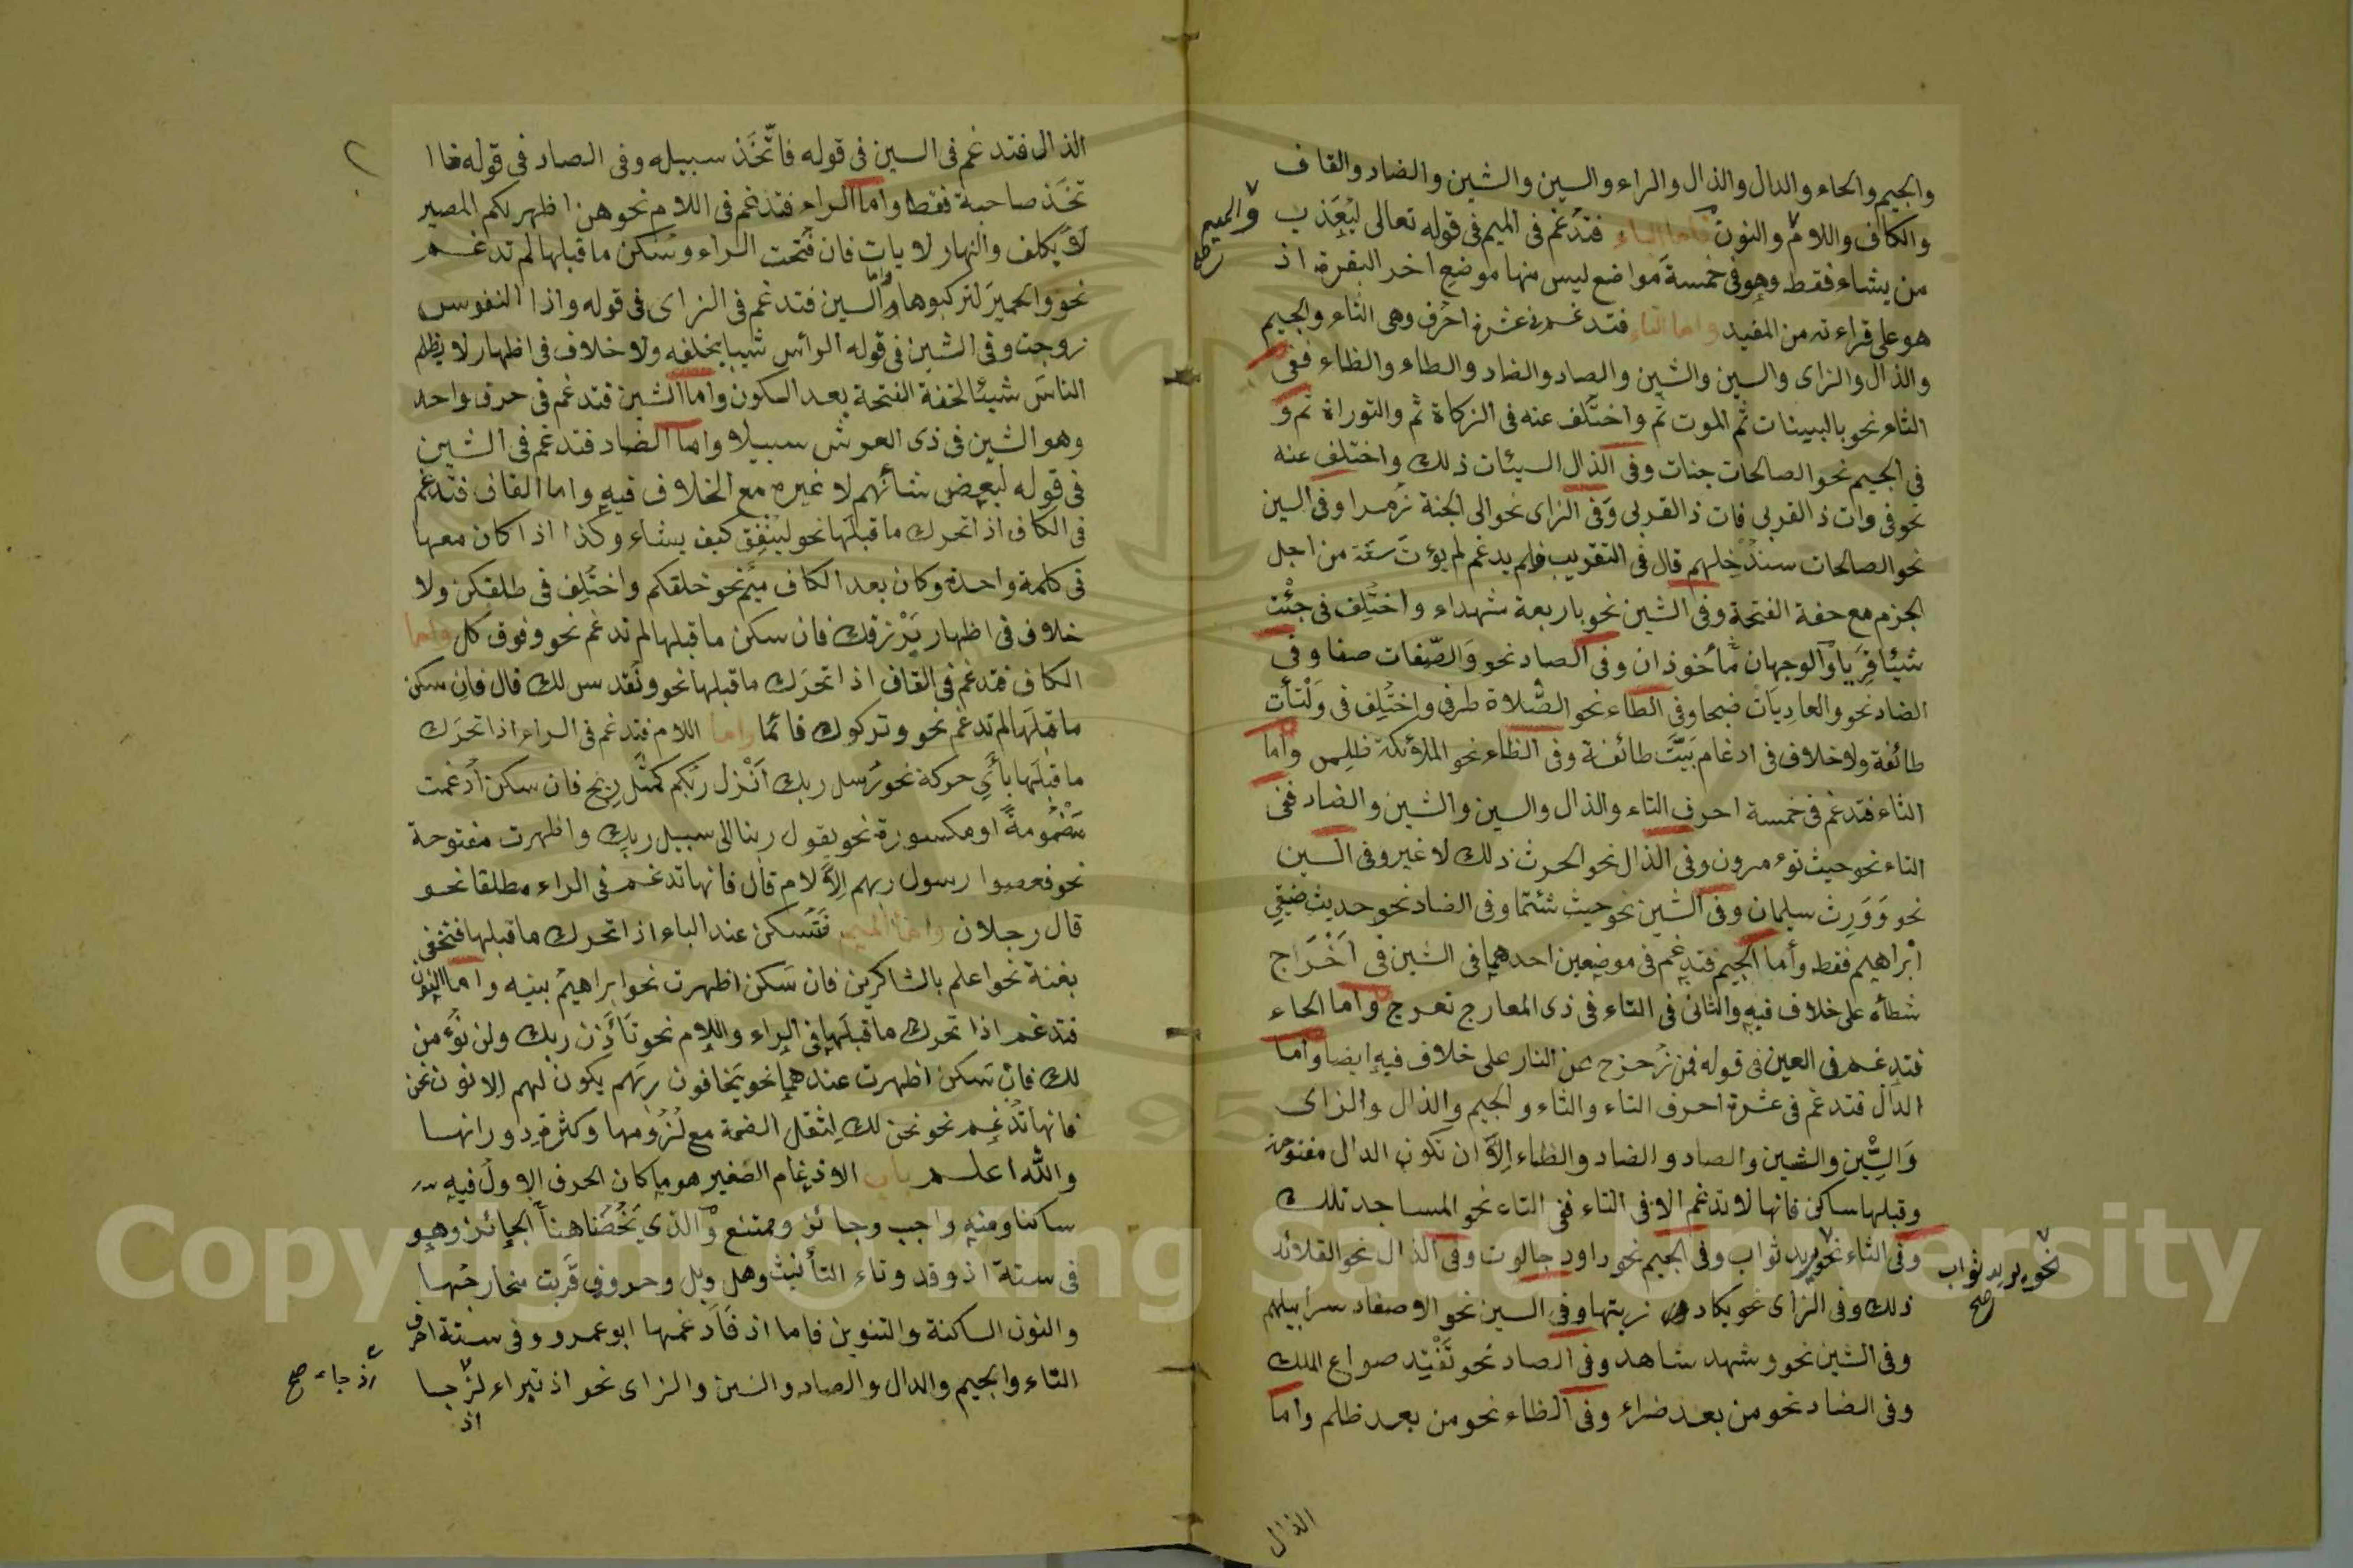 والجيم والحاء والدال والذال والراء والسين والشين والضاد والقاف
والكاف واللام والنون فاما الباء فتدغم فى الميم فى قوله تعالى ليُعَذب
والميم صح
من يشاء فقط وهو فى خمسة مواضع ليس منها موضع اخر البقرة اذ
هو على قراءته من المفيد واما التاء فتدغم فى عشرة احرف وهى الثاء والجيم
والذال والزاى والسين والشين والصاد والضاد والطاء والظاء ففى
الثاء نحو بالبينات ثم الموت ثم واختلف عنه فى الزكاة ثم والتوراة ثم و
فى الجيم نحو الصالحات جنات وفى الذال السيئات ذلك واختلف عنه
نحو فى وات ذ القربى فات ذ القربى وَفى الزاى نحو الى الجنة زمرا وفى السين
نحو الصالحات سندخلهم قال فى التقريب ولم يدغم لم يؤت سعة من اجل
الجزم مع خفة الفتحة وفى الشين نحو باربعة شهداء واختُلِف فى جئت
شيئا فَرِيا والوجهان مأخوذان وفى الصاد نحو وَالصّفات صفا وفى
الضاد نحو والعاديات ضبحا وفى الطاء نحو الصّلاة طرفى واختُلِف فى وَلْتأت
طائفة ولا خلاف فى ادغام بَيَّتَ طائفة وفى الظاء نحو الملائكة ظلمى واما
الثاء فتدغم فى خمسة احرف التاء والذال والسين والشين والضاد ففى
التاء نحو حيث تؤمرون وفى الذال نحو الحرث ذلك لا غير وفى السين
نحو وَوَرِث سليمان وفى الشين نحو حيث شئتما وفى الضاد نحو حديث ضيفِ
ابراهيم فقط وأما الجيم فتدغم فى موضعين احدهما فى الشين فى اَخْرَاج
شطأه على خلاف فيه والثانى فى التاء فى ذى المعارج تعرج واما الحاء
فتدغم فى العين فى قوله فمن زُحزح عن النار على خلاف فيه ايضا واما
الدال فتدغم فى عشرة احرف التاء والثاء والجيم والذال والزاى
وَالسِّين والشين والصاد والضاد والظاء اِلاَّ ان تكون الدال مفتوحة
وقبلها ساكن فانها لا تدغم الا فى التاء ففى التاء نحو المساجد تلك
وفى الثاء نحو يريد ثواب وفى الجيم نحو داود جالوت وفى الذال نحو القلائد
نحو يريد ثواب صح
ذلك وفى الزاى نحو يكاد زيتها وفى السين نحو الاصفاد سرابيلهم
وفى الشين نحو وشهد شاهد وفى الصاد نحو نَفْقِد صواع الملك
وفى الضاد نحو من بعد ضراء وفى الظاء نحو من بعد ظلم واما
الذال
الذال فتدغم فى السين فى قوله فاتَّخَذ سبيله وفى الصاد فى قوله ما ا
تخَذ صاحبة فقط واما الراء فتدغم فى اللام نحو هن اظهر لكم المصير
لا يكلف والنهار لايات فان فُتحت الراء وسُكن ما قبلها لم تدغم
نحو والحميرَ لتركبوها واما السين فتدغم فى الزاى فى قوله واذا النفوس
زوجت وفى الشين فى قوله الرأس شيبا بخلفه ولا خلاف فى اظهار لا يظلم
الناسَ شيئا لخفة الفتحة بعد السكون واما الشين فتدغم فى حرف واحد
وهو السين فى ذى العرش سبيلا واما الضاد فتدغم فى الشين
فى قوله لبعض شأنهم لا غيره مع الخلاف فيه واما القاف فتدغم
فى الكاف اذا تحرك ما قبلَها نحو يُنفِق كيف يشاء وكذا اذا كان معها
فى كلمة واحدة وكان بعد الكاف ميم نحو خلقكم واختُلِف فى طلقكن ولا
خلاف فى اظهار يَرْزقك فان سكن ما قبلها لم تدغم نحو وفوق كل واما
الكاف فتدغم فى القاف اذا تحرَك ما قبلها نحو ونُقدس لك قال فاِن سكن
ما قبلَها لم تدغم نحو وتركوك قائما واما اللام فتدغم فى الراء اذا تحرَك
ما قبلَها بأي حركة نحو رسل ربك اَنْزل ربكم كمثَل ريح فان سكن اُدغمت
مَضْمُومةً او مكسورة نحو يقول ربنا الى سبيل ربك واظهرت مفتوحة
نحو فعصوا رسول ربهم اِلاَّ لام قال فانها تدغم فى الراء مطلقا نحو
قال رجلان واما الميم فَتسكن عند الباء اذا تحرك ما قبلها فتخفى
بغنة نحو اعلم بالشاكرين فان سَكن اظهرت نحو ابراهيمُ بنيه واما النون
فتدغم اذا تحرك ما قبلَها فى الراء واللام نحو تَأَذن ربك ولن نؤمن
لك فان سَكن اظهرت عندهما نحو يَخافون ربَهم يكون لهم اِلا نون نحن
فانها تُدغم نحو نحن لك لِثقل الضمة مع لُزُومها وكثرة دورانها
والله اعلم باب الادغام الصغير هو ما كان الحرف الاولُ فيه
ساكنا ومنه واجب وجائز وممتنع والذي يَخُصُّنا هنا الجائز وهو
فى ستة اذ وقد وتاء التأنيث وهل وبل وحروف قَرُبت مخارجُها
والنون الساكنة والتنوين فاما اذ فَاَدغمها ابو عمرو وفى ستة احرف
التاء والجيم والدال والصاد والسين والزاى نحو اذ تبراء
اذ جاء صح
اذ